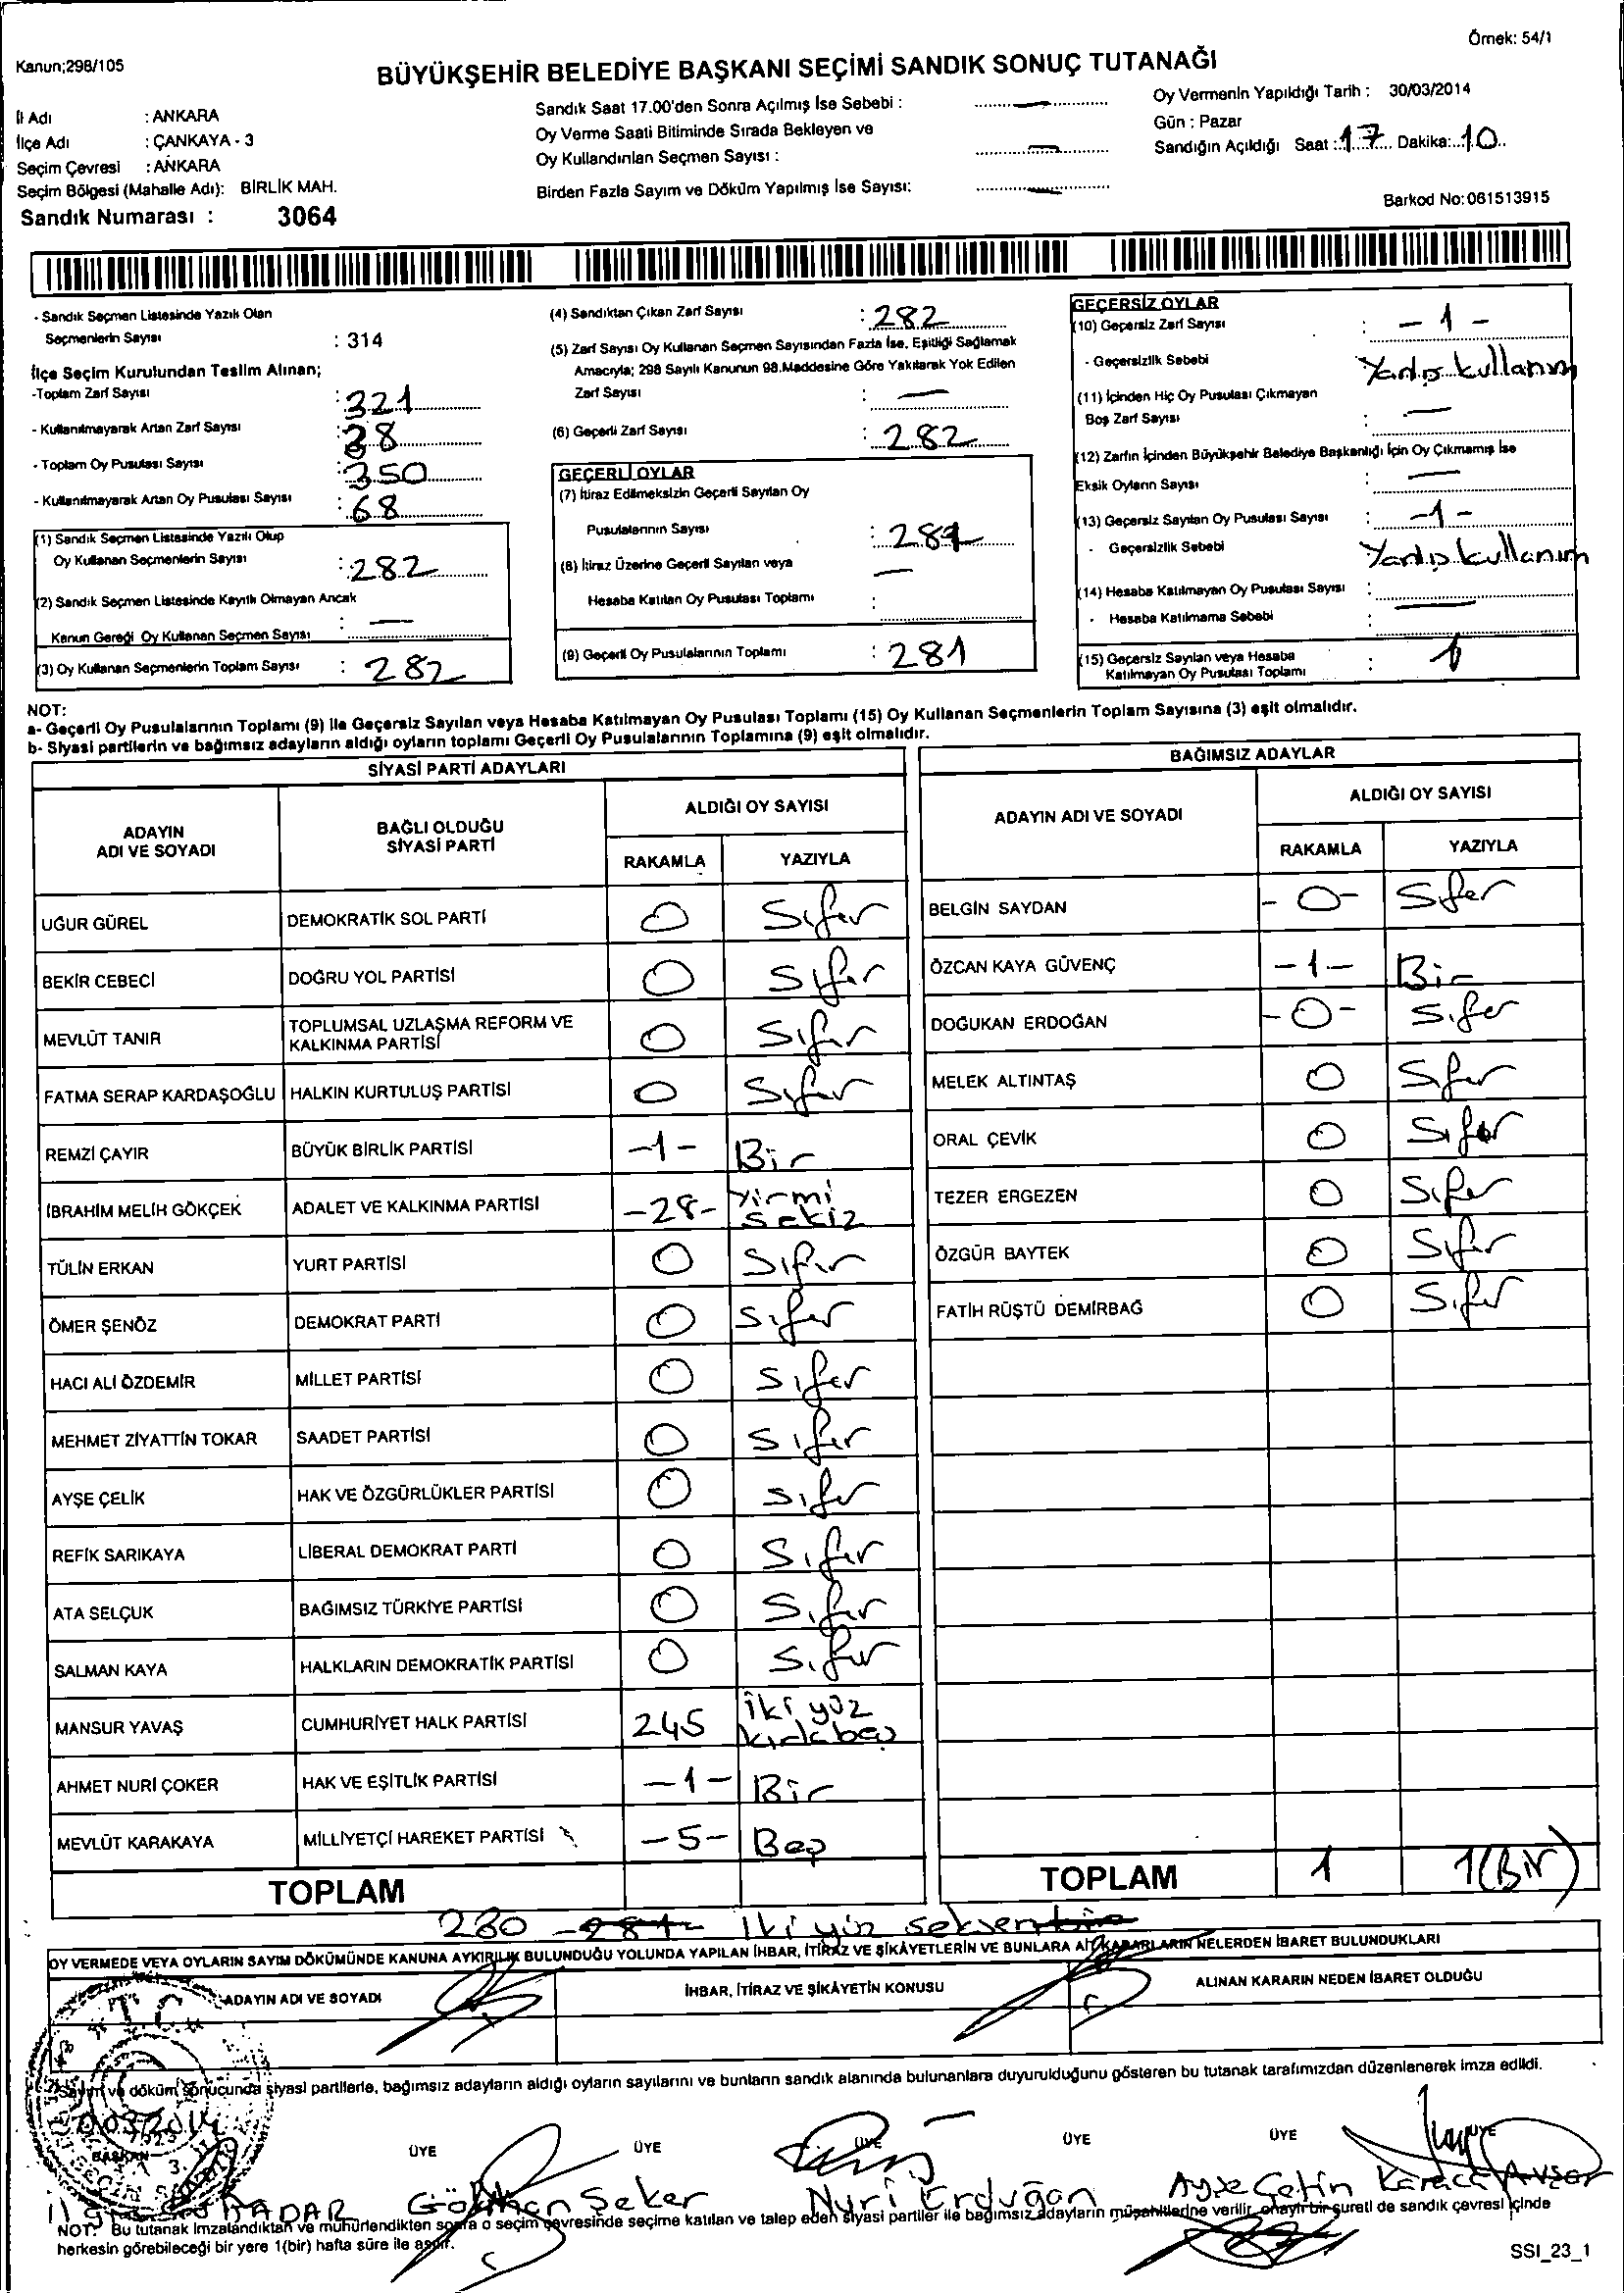 Kanun;298/105
Örnek: 54/1
BÜYÜKŞEHİR BELEDİYE BAŞKANI SEÇİMİ SANDIK SONUÇ TUTANAĞI
İl Adı : ANKARA
İlçe Adı : ÇANKAYA - 3
Seçim Çevresi : ANKARA
Seçim Bölgesi (Mahalle Adı): BİRLİK MAH.
Sandık Numarası : 3064
Sandık Saat 17.00'den Sonra Açılmış İse Sebebi : —
Oy Verme Saati Bitiminde Sırada Bekleyen ve
Oy Kullandırılan Seçmen Sayısı : —
Birden Fazla Sayım ve Döküm Yapılmış İse Sayısı: —
Oy Vermenin Yapıldığı Tarih : 30/03/2014
Gün : Pazar
Sandığın Açıldığı Saat : 17 Dakika: 10
Barkod No:061513915
- Sandık Seçmen Listesinde Yazılı Olan
Seçmenlerin Sayısı : 314
İlçe Seçim Kurulundan Teslim Alınan;
-Toplam Zarf Sayısı : 321
- Kullanılmayarak Artan Zarf Sayısı : 38
- Toplam Oy Pusulası Sayısı : 350
- Kullanılmayarak Artan Oy Pusulası Sayısı : 68
(1) Sandık Seçmen Listesinde Yazılı Olup
Oy Kullanan Seçmenlerin Sayısı : 282
(2) Sandık Seçmen Listesinde Kayıtlı Olmayan Ancak
Kanun Gereği Oy Kullanan Seçmen Sayısı : —
(3) Oy Kullanan Seçmenlerin Toplam Sayısı : 282
(4) Sandıktan Çıkan Zarf Sayısı : 282
(5) Zarf Sayısı Oy Kullanan Seçmen Sayısından Fazla İse, Eşitliği Sağlamak
Amacıyla; 298 Sayılı Kanunun 98.Maddesine Göre Yakılarak Yok Edilen
Zarf Sayısı : —
(6) Geçerli Zarf Sayısı : 282
GEÇERLİ OYLAR
(7) İtiraz Edilmeksizin Geçerli Sayılan Oy
Pusulalarının Sayısı : 281
(8) İtiraz Üzerine Geçerli Sayılan veya
Hesaba Katılan Oy Pusulası Toplamı : —
(9) Geçerli Oy Pusulalarının Toplamı : 281
GEÇERSİZ OYLAR
(10) Geçersiz Zarf Sayısı : - 1 -
- Geçersizlik Sebebi : Yanlış kullanım
(11) İçinden Hiç Oy Pusulası Çıkmayan
Boş Zarf Sayısı : —
(12) Zarfın İçinden Büyükşehir Belediye Başkanlığı İçin Oy Çıkmamış İse
Eksik Oyların Sayısı : —
(13) Geçersiz Sayılan Oy Pusulası Sayısı : -1-
- Geçersizlik Sebebi Yanlış kullanım
(14) Hesaba Katılmayan Oy Pusulası Sayısı : —
- Hesaba Katılmama Sebebi :
(15) Geçersiz Sayılan veya Hesaba
Katılmayan Oy Pusulası Toplamı : 1
NOT:
a- Geçerli Oy Pusulalarının Toplamı (9) ile Geçersiz Sayılan veya Hesaba Katılmayan Oy Pusulası Toplamı (15) Oy Kullanan Seçmenlerin Toplam Sayısına (3) eşit olmalıdır.
b- Siyasi partilerin ve bağımsız adayların aldığı oyların toplamı Geçerli Oy Pusulalarının Toplamına (9) eşit olmalıdır.
SİYASİ PARTİ ADAYLARI
ADAYIN ADI VE SOYADI BAĞLI OLDUĞU SİYASİ PARTİ ALDIĞI OY SAYISI
RAKAMLA YAZIYLA
UĞUR GÜREL DEMOKRATİK SOL PARTİ 0 Sıfır
BEKİR CEBECİ DOĞRU YOL PARTİSİ 0 Sıfır
MEVLÜT TANIR TOPLUMSAL UZLAŞMA REFORM VE KALKINMA PARTİSİ 0 Sıfır
FATMA SERAP KARDAŞOĞLU HALKIN KURTULUŞ PARTİSİ 0 Sıfır
REMZİ ÇAYIR BÜYÜK BİRLİK PARTİSİ -1- Bir
İBRAHİM MELİH GÖKÇEK ADALET VE KALKINMA PARTİSİ -28- Yirmi sekiz
TÜLİN ERKAN YURT PARTİSİ 0 Sıfır
ÖMER ŞENÖZ DEMOKRAT PARTİ 0 Sıfır
HACI ALİ ÖZDEMİR MİLLET PARTİSİ 0 Sıfır
MEHMET ZİYATTİN TOKAR SAADET PARTİSİ 0 Sıfır
AYŞE ÇELİK HAK VE ÖZGÜRLÜKLER PARTİSİ 0 Sıfır
REFİK SARIKAYA LİBERAL DEMOKRAT PARTİ 0 Sıfır
ATA SELÇUK BAĞIMSIZ TÜRKİYE PARTİSİ 0 Sıfır
SALMAN KAYA HALKLARIN DEMOKRATİK PARTİSİ 0 Sıfır
MANSUR YAVAŞ CUMHURİYET HALK PARTİSİ 245 iki yüz kırk beş
AHMET NURİ ÇOKER HAK VE EŞİTLİK PARTİSİ -1- Bir
MEVLÜT KARAKAYA MİLLİYETÇİ HAREKET PARTİSİ -5- Beş
TOPLAM
280 281 iki yüz seksen bir
BAĞIMSIZ ADAYLAR
ADAYIN ADI VE SOYADI ALDIĞI OY SAYISI
RAKAMLA YAZIYLA
BELGİN SAYDAN -0- Sıfır
ÖZCAN KAYA GÜVENÇ -1- Bir
DOĞUKAN ERDOĞAN -0- Sıfır
MELEK ALTINTAŞ 0 Sıfır
ORAL ÇEVİK 0 Sıfır
TEZER ERGEZEN 0 Sıfır
ÖZGÜR BAYTEK 0 Sıfır
FATİH RÜŞTÜ DEMİRBAĞ 0 Sıfır
TOPLAM 1 1(Bir)
OY VERMEDE VEYA OYLARIN SAYIM DÖKÜMÜNDE KANUNA AYKIRILIK BULUNDUĞU YOLUNDA YAPILAN İHBAR, İTİRAZ VE ŞİKÂYETLERİN VE BUNLARA AİT KARARLARIN NELERDEN İBARET BULUNDUKLARI
ADAYIN ADI VE SOYADI İHBAR, İTİRAZ VE ŞİKÂYETİN KONUSU ALINAN KARARIN NEDEN İBARET OLDUĞU
T.C.
Sayım ve döküm sonucunda siyasi partilerle, bağımsız adayların aldığı oyların sayılarını ve bunların sandık alanında bulunanlara duyurulduğunu gösteren bu tutanak tarafımızdan düzenlenerek imza edildi.
BAŞKAN ÜYE ÜYE ÜYE ÜYE ÜYE ÜYE
Gökhan Şeker Nuri Erdoğan Ayşe Çetin Karaca Avşar
NOT: Bu tutanak imzalandıktan ve mühürlendikten sonra o seçim çevresinde seçime katılan ve talep eden siyasi partiler ile bağımsız adayların müşahitlerine verilir, onaylı bir sureti de sandık çevresi içinde
herkesin görebileceği bir yere 1(bir) hafta süre ile asılır.
SSI_23_1